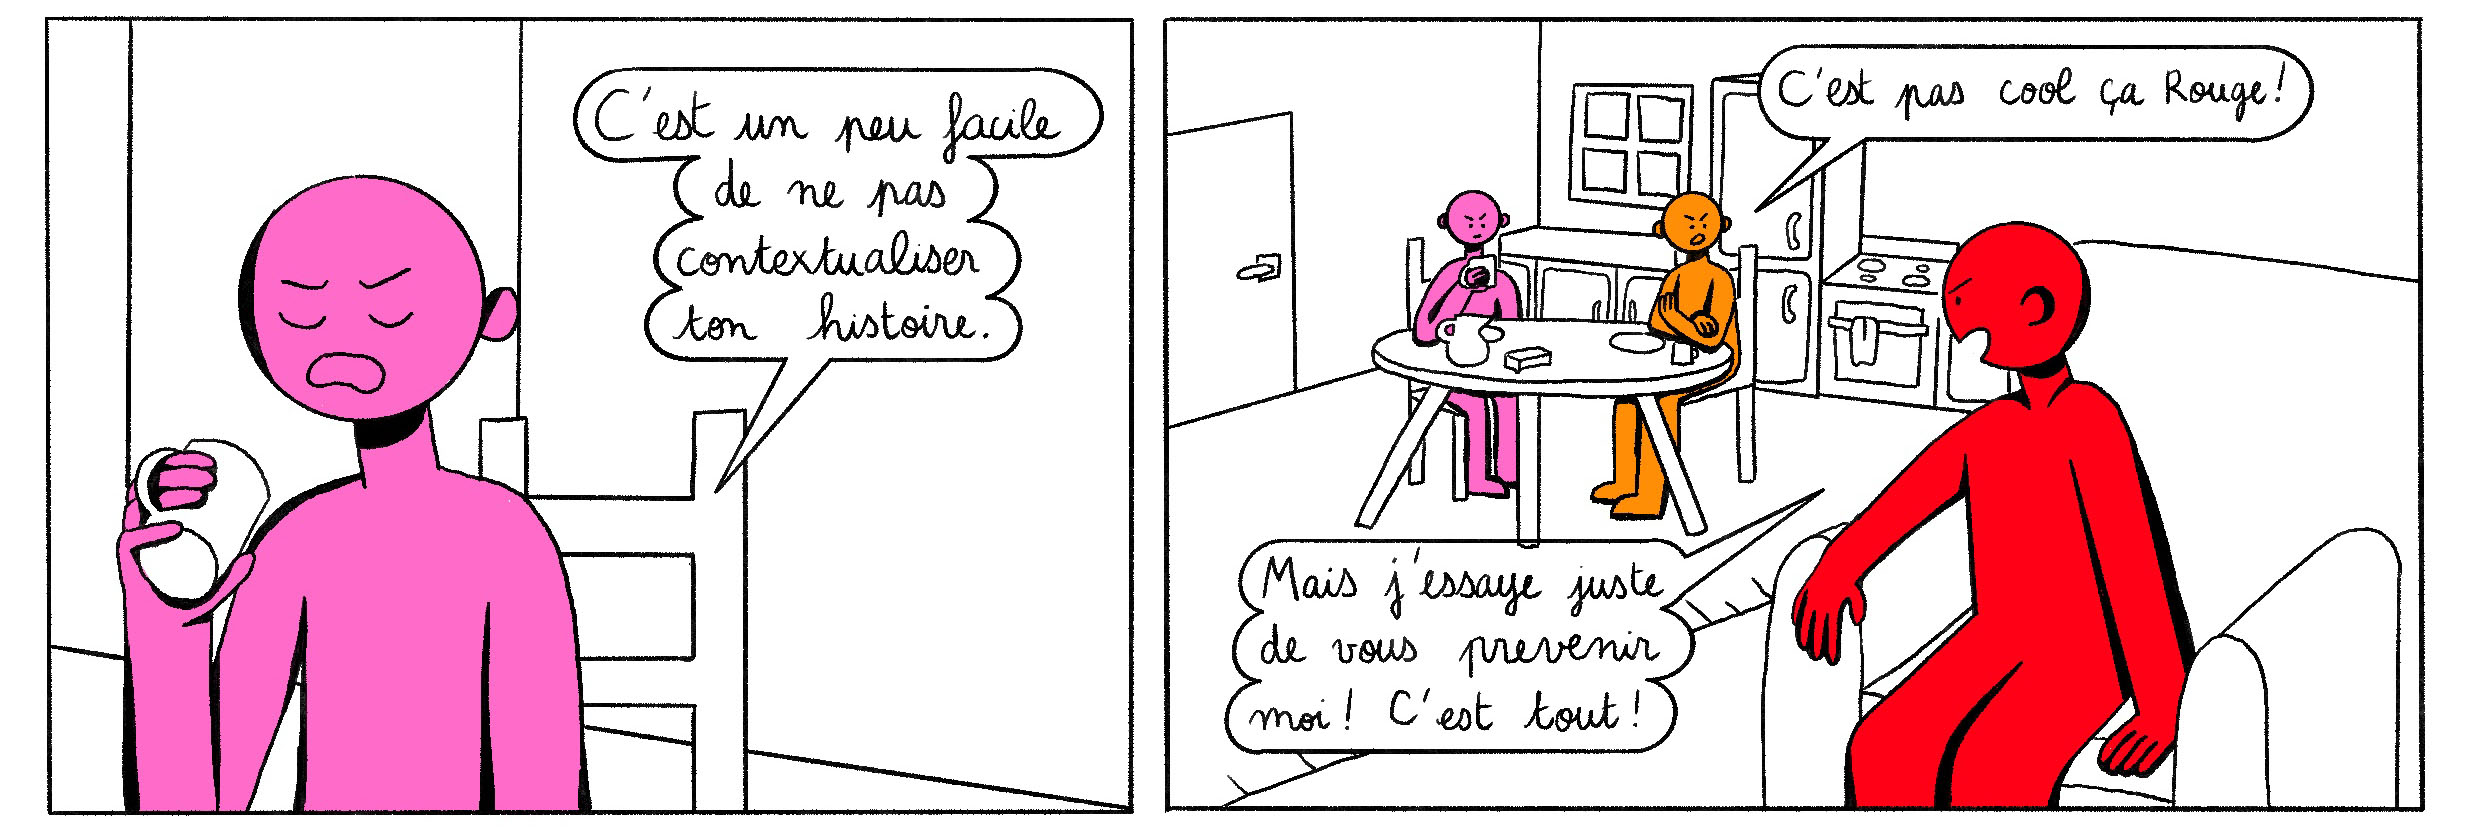 C'est un peu facile
de ne pas
contextualiser
ton histoire.
C'est pas cool ça Rouge!
Mais j'essaye juste
de vous prevenir
moi! C'est tout!